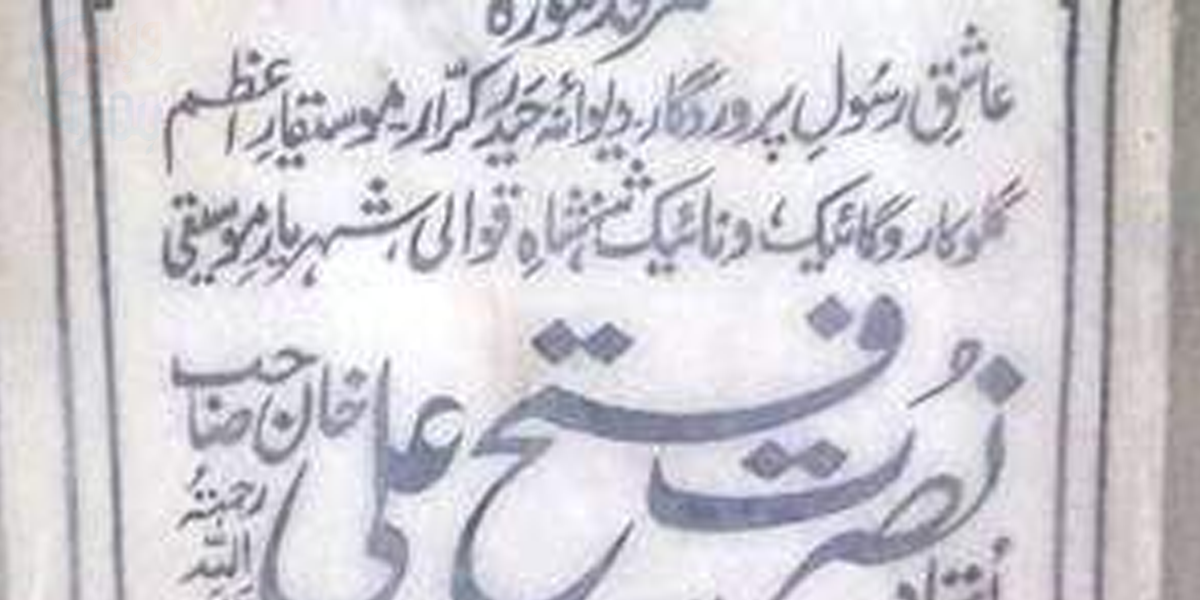 مرقد منورہ
عاشقِ رسُولِ پروردگار۔ دیوانۂ حیدرِ کرّار۔ موسیقارِ اعظم
گلوکار و گائیک، و نائیک شہنشاہِ قوالی، شہریارِ موسیقی
نُصرت فتح علی خان صاحب
رحمتہُ اللہِ
اُستاد